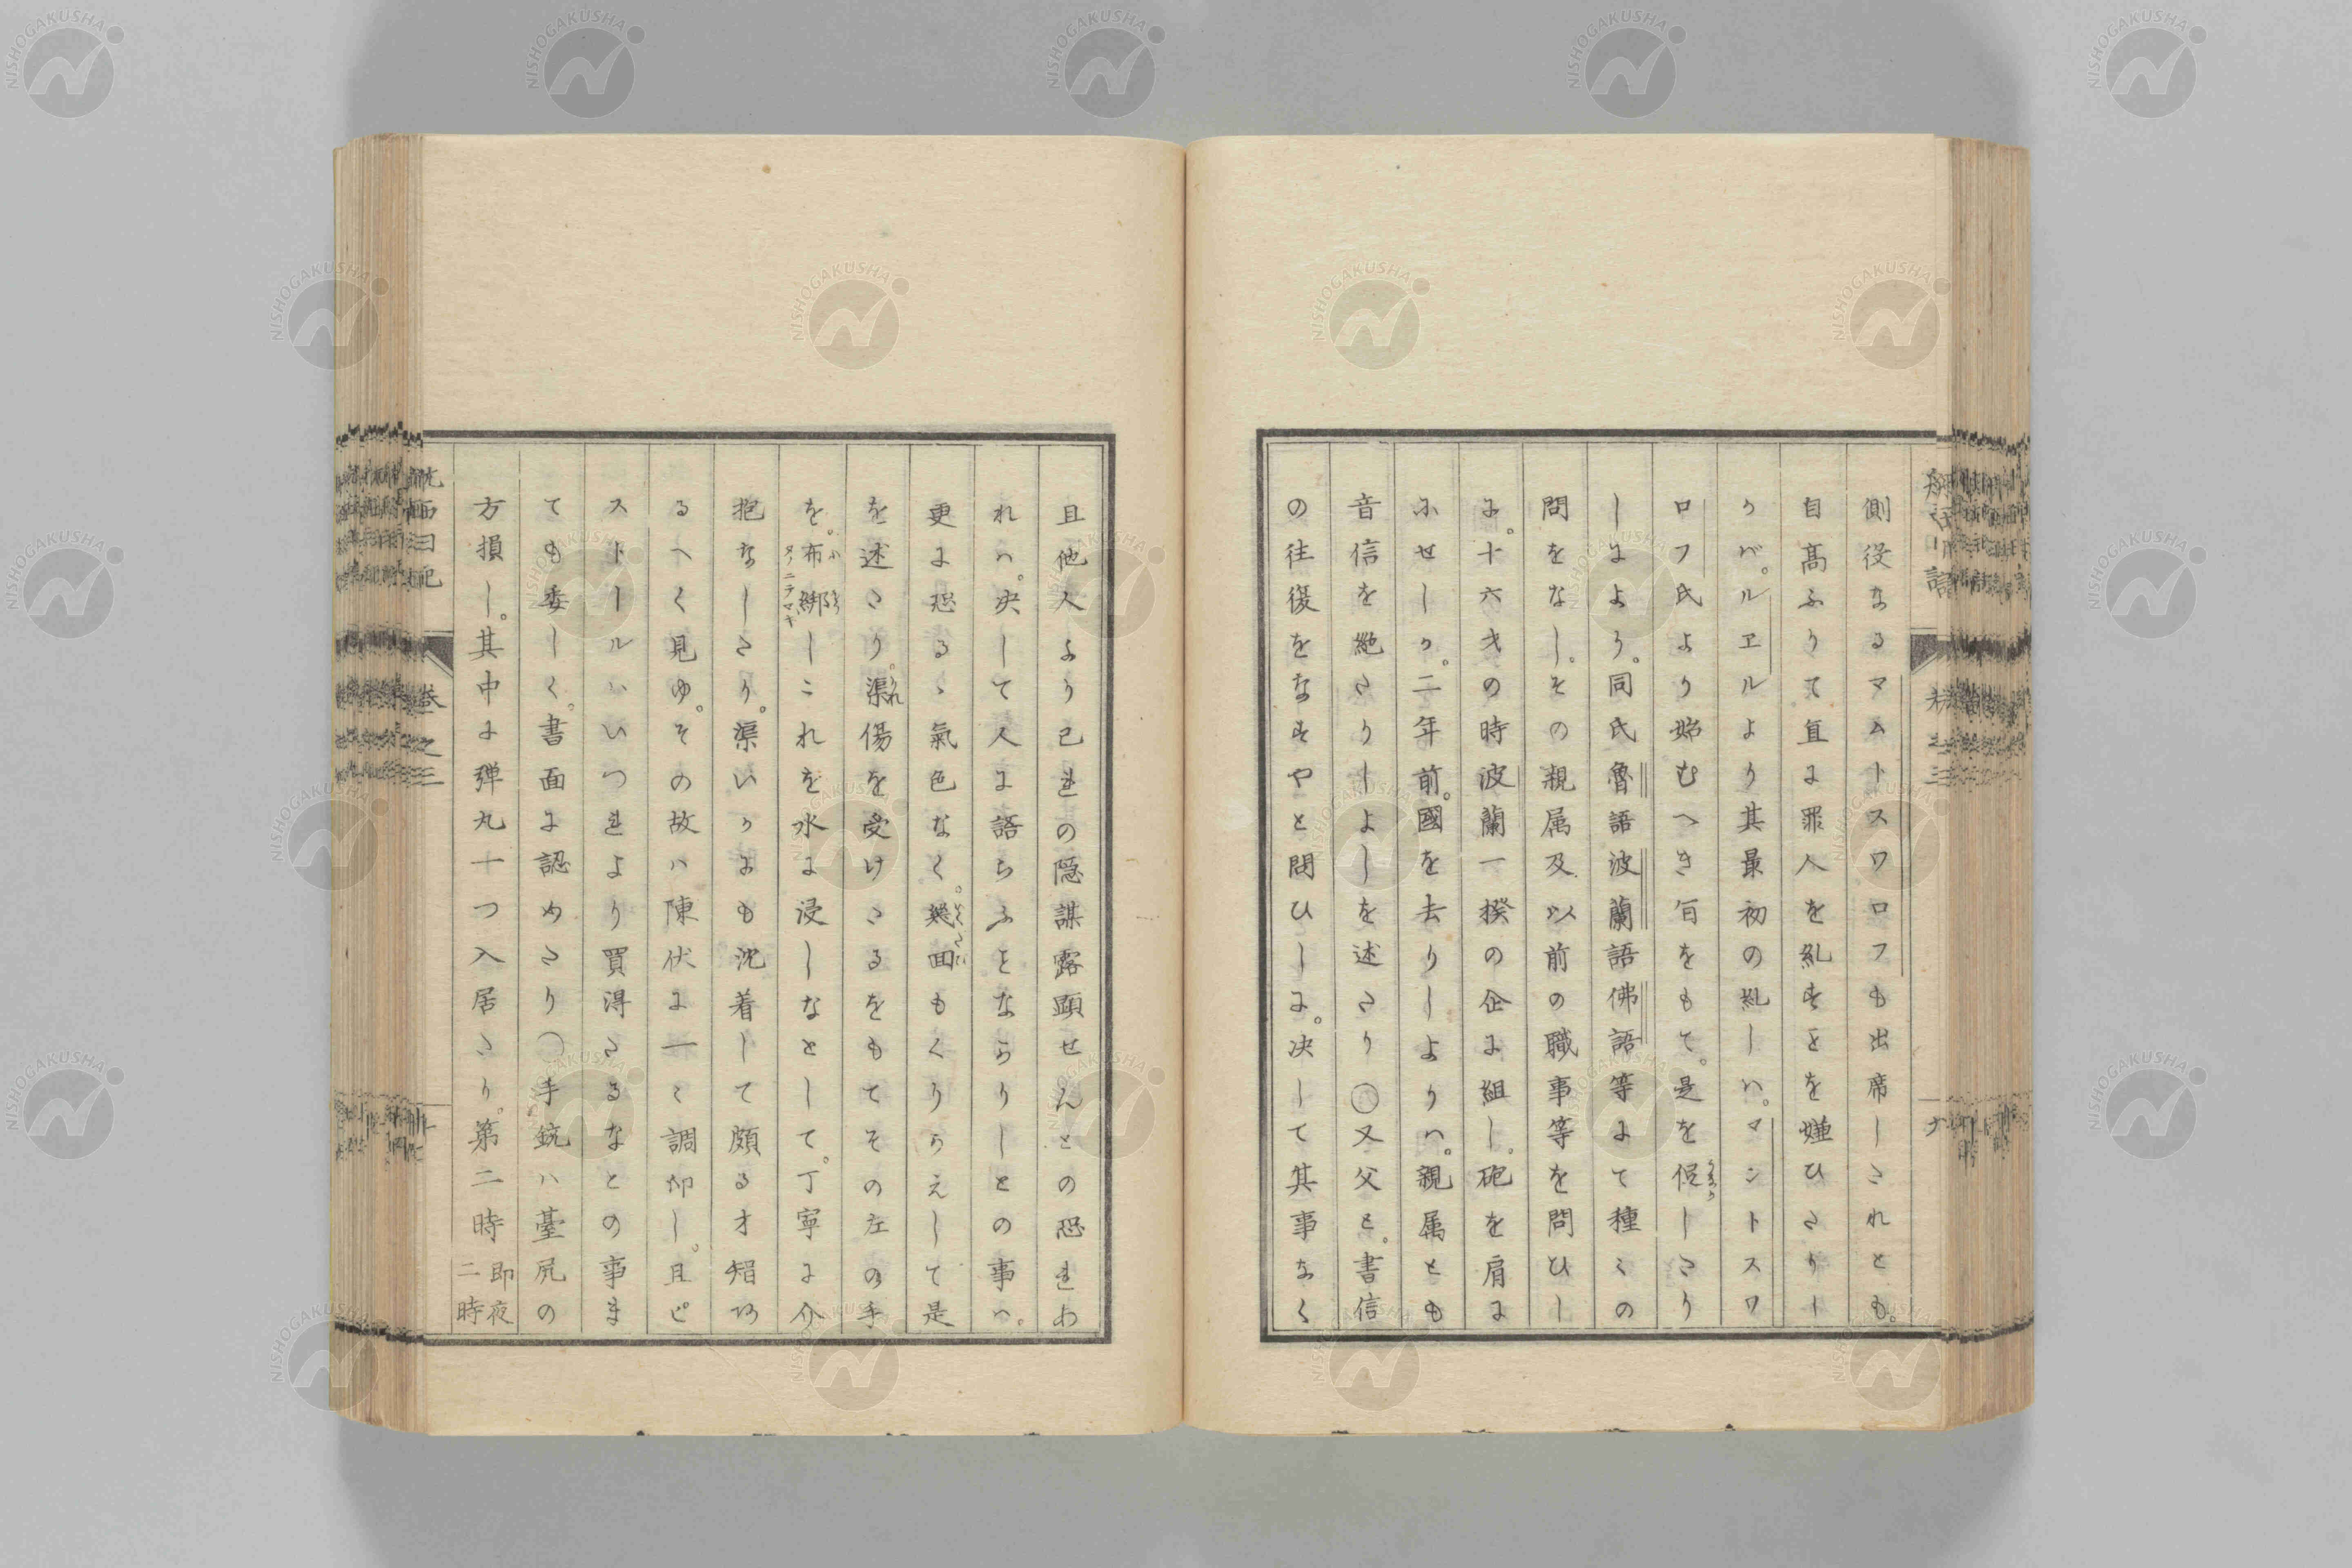 側役なるマムトスワロフも出席しされとも。
自髙ふりて直に罪人を糺すとを嫌ひさりし
かバ。ルヱルより其最初の糺しハ。マントスワ
ロフ氏より始むへき旨をもて。是を促しさり
しによう。同氏魯語波蘭語佛語等にて種〻の
問をなし。その親属及以前の職事等を問ひし
に。十六才の時波蘭一揆の企に組し。砲を肩に
ふせしか。二年前。國を去りしよりハ。親属とも
音信を絶さりしよしを述さり〇又父と。書信
の往復をなすやと問ひしに。决して其事なく
且他人より己れの隠謀露顕せんとの恐れあ
れハ。决して人に語らふとならりしとの事ハ。
更に恐るゝ氣色なく。幾回もくりうえして是
を述さり。渠傷を受けさるをもてその左の手
を。布綁しこれを水に浸しなとして。丁寧に介
抱なしさり。渠いかにも沈着して頗る才智巧
るへく見ゆ。その故ハ陳伏に一〻調印し。且ピ
ストールハいつれより買得さるなとの事ま
ても委しく。書面に認めさり〇手銃ハ臺尻の
方損し。其中に弾丸十つ入居さり。第二時 即夜二時
航西日記
巻之三
NISHOGAKUSHA